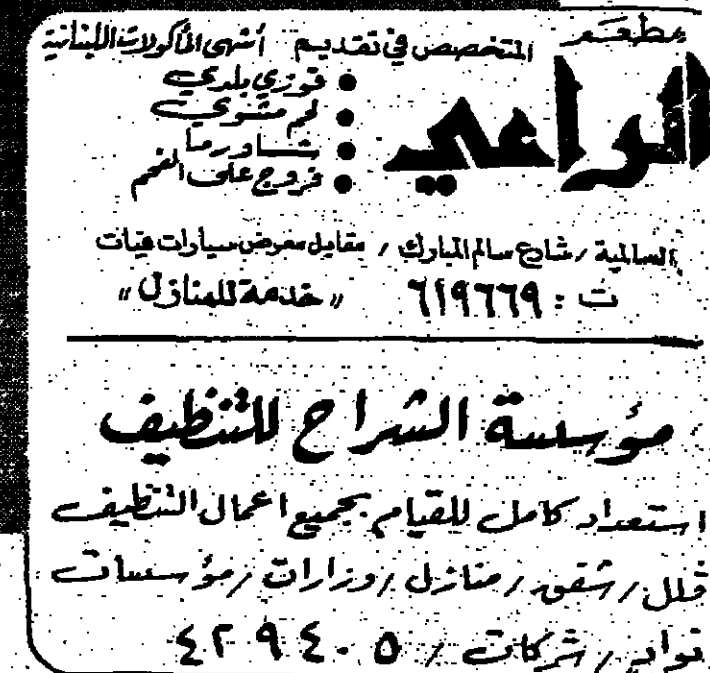 مطعم
الراعي
المتخصص في تقديم أشهى المأكولات اللبنانية
• قوزي بلدي
• لحم مشوي
• شاورما
• فروج على الفحم
السالمية / شارع سالم المبارك / مقابل معرض سيارات فيات
ت : ٦١٩٦٦٩ "خدمة للمنازل"
مؤسسة الشراح للتنظيف
استعداد كامل للقيام بجميع اعمال التنظيف
فلل / شقق / منازل / وزارات / مؤسسات
نوادي / شركات / ٤٢٩٤٠٥